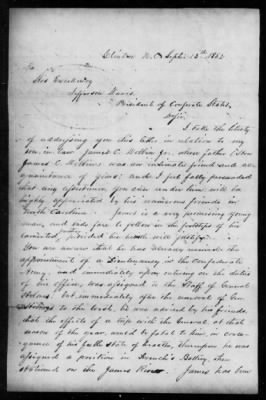 Clinton N.C. Sept. 15th 1862
To
His Excellency
Jefferson Davis
President of Confederate States,
I take the liberty
of addressing you this letter in relation to my
son in law James C. Jr, whose father Hon
James C. was an intimate friend and ac-
quaintance of yours; and I feel fully persuaded
that any in him will be
highly appreciated by his numerous friends in
North Carolina. James is a very promising young
man, and bids fair to follow in the footsteps of his
provided his health will justify it.
You are aware that he has already received the
appointment of a Lieutenancy in the Confederate
Army, and immediately upon entering on the duties
of his office, was assigned to the Staff of General
Holmes. but immediately after the removal of Gen
Holmes to the West, he was advised by his friends,
that the effects of a trip with the General, at that
season of the year, would be fatal to him, in conse-
quence of his state of health, whereupon he was
assigned a position in Battery then
stationed on the James River. James has been